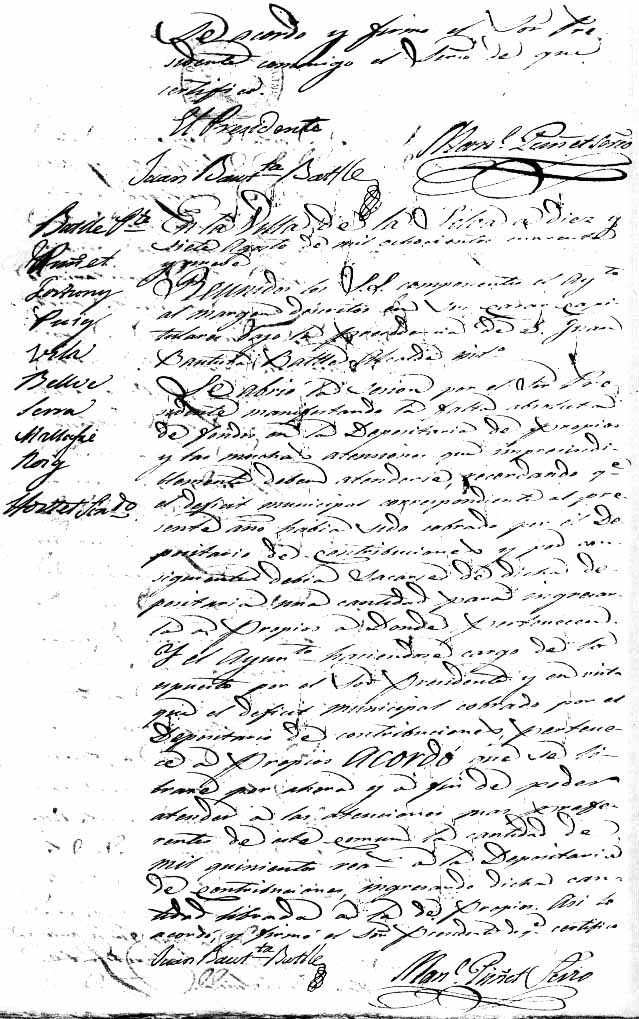 Se acordó y firmó el Sor Pre-
sidente conmigo el Srio de que
certifico.
El Presidente
Juan Bautta Batlle
Manl Puñet Serio
Batlle Pte
Puñet
Puig
Vila
Bellve
Serra
Mallafré
Roig
En la Villa de la a diez y
siete Agosto de mil ochocientos cuarenta
y nueve
Reunidos los SS. componentes el Ayto
al margen descritos en su casas capi-
tulares bajo la Presidencia de Dn Juan
Bautista Batlle Alcalde
Se abrió la sesion por el Sor Pre-
sidente manifestando la falta absoluta
de fondos en la Depositaria de Propios
y las muchas atenciones que imprescindi-
blemente deben atenderse recordando qe
el deficit municipal correspondiente al pre-
sente año habia sido cobrado por el De-
positario de contribuciones y por con-
siguiente debia sacarse de dicha de-
positaria una cantidad para ingresar-
la a Propios a donde pertenecen.
Y el Ayunto haciendose cargo de lo
espuesto por el Sor Presidente y en vista
que el deficit municipal cobrado por el
Depositario de contribuciones pertene-
ce a Propios Acordó que se li-
brase por ahora y a fin de poder
atender a las atenciones mas prefe-
rentes de este comun la cantidad de
mil quinientos reas a la Depositaria
de contribuciones, ingresando dicha can-
tidad librada a la de Propios. Asi lo
acordó y firmó el Sor Presidente de qe certifico
Juan Bautta Batlle
Manl Puñet Serio